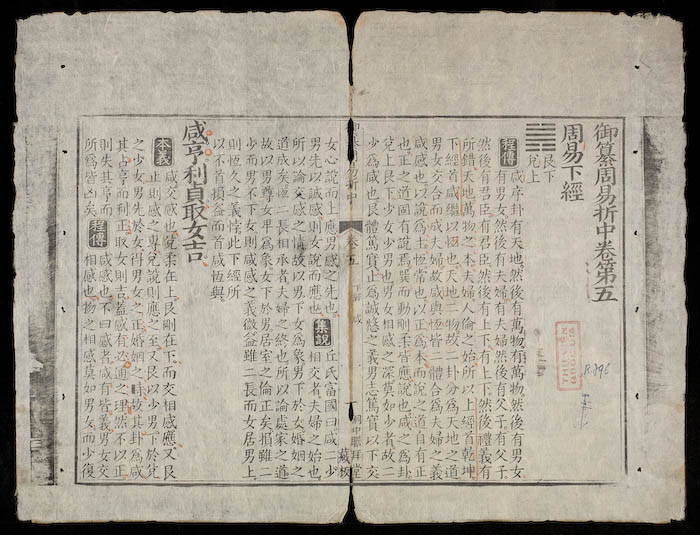 御纂周易折中卷第五
周易下經
䷞ 艮下
兌上
程傳 咸序卦有天地然後有萬物有萬物然後有男女
有男女然後有夫婦有夫婦然後有父子有父子
然後有君臣有君臣然後有上下有上下然後禮義有
所錯天地萬物之本夫婦人倫之始所以上經首乾坤
下經首咸繼以恒也天地二物故二卦分爲天地之道
男女交合而成夫婦故咸與恒皆二體合爲夫婦之義
咸感也以說爲主恒常也以正爲本而說之道自有正
也正之道固有說焉巽而動剛柔皆應說也咸之爲卦
兌上艮下少女少男也男女相感之深莫如少者故二
少爲咸也艮體篤實止爲誠慤之義男志篤實以下交
卷五
藏板
女心說而上應男感之先也 集說 丘氏富國曰咸二少
男先以誠感則女說而應也 相交者夫婦之始也
所以論交感之情故以男下女爲象男下於女婚姻之
道成矣恒二長相承者夫婦之終也所以論處家之道
故以男尊女卑爲象女下於男居室之倫正矣損雖二
少而男不下女則咸感之義微益雖二長而女居男上
則恆久之義悖此下經所
以不首損益而首咸恒與
咸亨利貞取女吉
本義 咸交感也兌柔在上艮剛在下而交相感應又艮
止則感之專兌說則應之至又艮以少男下於兌
之少女男先於女得男女之正婚姻之時故其卦爲咸
其占亨而利正取女則吉蓋感有必通之理然不以正
則失其亨而 程傳 咸感也不曰感者咸有皆義男女交
所爲皆凶矣 相感也物之相感莫如男女而少復